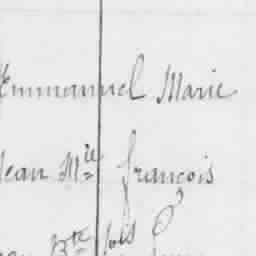 Emmanuel Marie
Jean Mie François
Bte